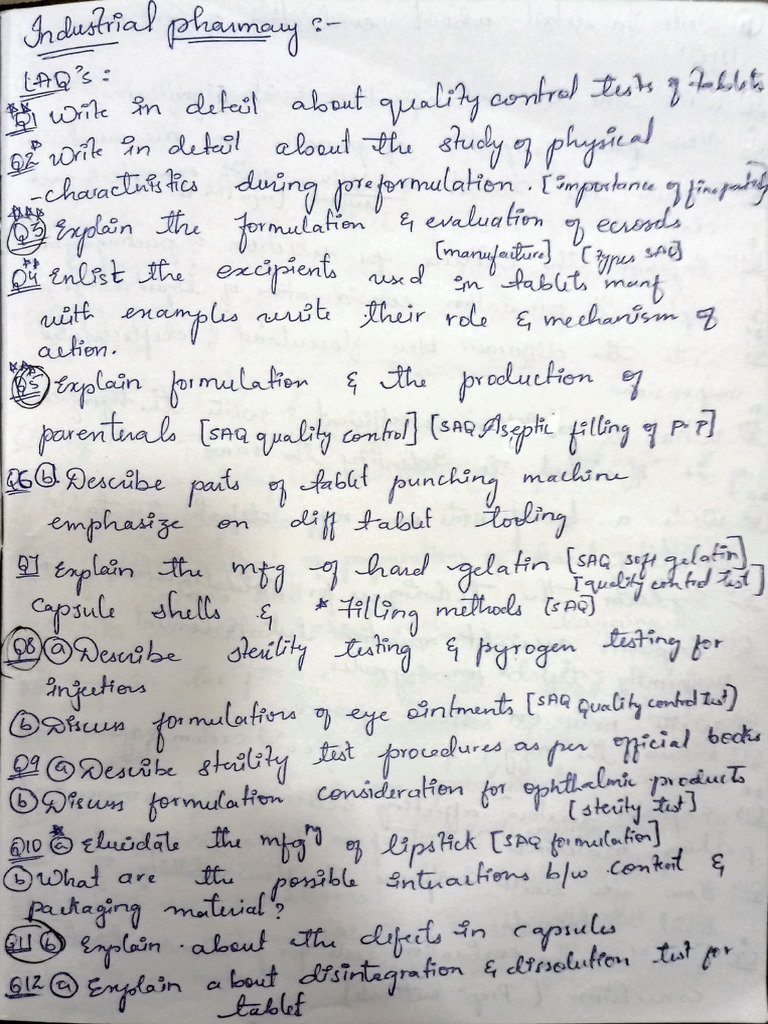 Industrial pharmacy :-
LAQ's :
** Q1 Write in detail about quality control tests of Tablets
Q2* Write in detail about the study of physical
-charactristics during preformulation. [importance of fine particles]
*** Q3 Explain the formulation & evaluation of ecrosols
[manufacture] [Types SAQ]
** Q4 Enlist the excipients used in tablets manf
with examples write their role & mechanism of
action.
** Q5 Explain formulation & the production of
parenterals [SAQ quality control] [SAQ Aseptic filling of P.P]
Q6 (b) Describe parts of tablet punching machine
emphasize on diff tablet tooling
Q7 Explain the mfg of hard gelatin [SAQ soft gelatin]
[quality control test]
capsule shells & * Filling methods [SAQ]
Q8 (a) Describe sterility testing & pyrogen testing for
injections
(b) Discuss formulations of eye ointments [SAQ Quality control test]
Q9 (a) Describe sterility test procedures as per official books
(b) Discuss formulation consideration for ophthalmic products
[sterity test]
Q10 (a)* Elucidate the mfgng of lipstick [SAQ formulation]
(b) What are the possible interactions b/w content &
packaging material?
Q11 (b) Explain about the defects in capsules
Q12 (a) Explain about disintegration & dissolution test for
tablet